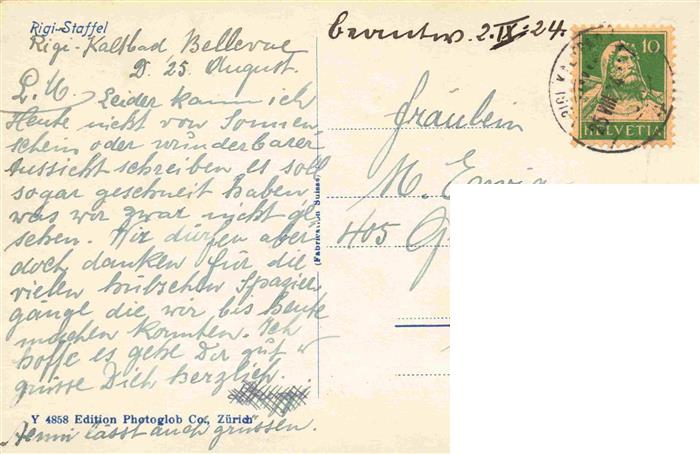 Rigi-Staffel
Rigi-Kaltbad Bellevue
D. 25. August.
L. M. Leider kann ich
Heute nicht von Sonnen
schein oder wunderbarer
Aussicht schreiben es soll
sogar geschneit haben,
was wir zwar nicht
sehen. Wir dürfen aber
doch danken für die
vielen hübschen Spazier
gänge die wir bis heute
machen konnten. Ich
hoffe es gehe Dir gut u
grüsse Dich herzlich.
Y 4858 Edition Photoglob Co., Zürich
lässt auch grüssen.
(Fabrication Suisse)
beantw. 2.IX.24.
10
HELVETIA
RIGI KALTBAD
Fräulein
M.
405